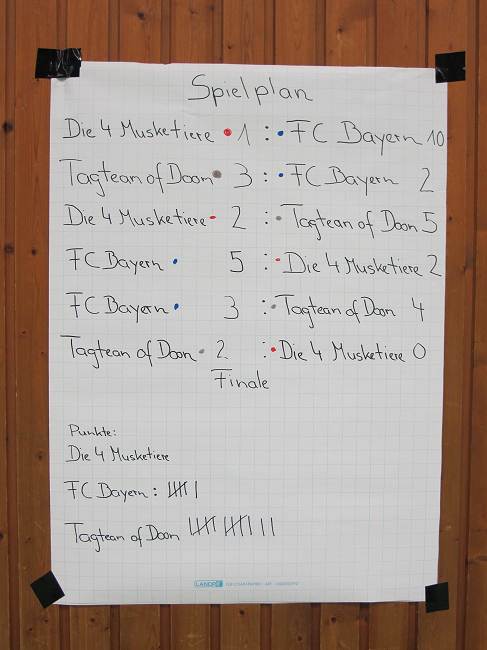 Spielplan
Die 4 Musketiere 1 : FC Bayern 10
Tagtean of Doom 3 : FC Bayern 2
Die 4 Musketiere 2 : Tagtean of Doon 5
FC Bayern 5 : Die 4 Musketiere 2
FC Bayern 3 : Tagtean of Doon 4
Tagtean of Doon 2 : Die 4 Musketiere 0
Finale
Punkte:
Die 4 Musketiere
FC Bayern : |||| |
Tagtean of Doon |||| |||| |||
LANDRÉ